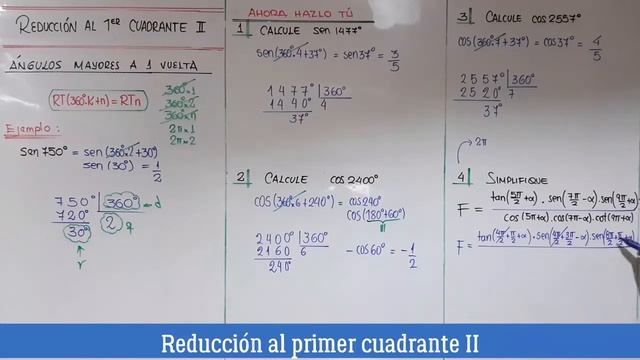 REDUCCIÓN AL 1ER CUADRANTE II
ÁNGULOS MAYORES A 1 VUELTA
RT(360°.K+n) = RTn
360°x1
360°x2
360°xn
2π x 1
2π x 2
Ejemplo:
sen 750° = sen(360°.2+30°)
sen(30°) = 1/2
750° | 360° → d
720° 2 q
30°
r
AHORA HAZLO TÚ
1 CALCULE sen 1477°
sen(360°.4+37°) = sen 37° = 3/5
1477° | 360°
1440° 4
37°
2 CALCULE cos 2400°
cos(360°.6+240°) = cos 240°
cos(180°+60°)
III
2400° | 360°
2160 6
240°
-cos 60° = -1/2
3 CALCULE cos 2557°
cos(360°.7+37°) = cos 37° = 4/5
2557° | 360°
2520° 7
37°
2π
4 SIMPLIFIQUE
F = tan(5π/2+α) . sen(7π/2-α) . sen(9π/2+α)
cos(5π+α) . cos(7π-α) . cot(9π+α)
F = tan(4π/2+π/2+α) . sen(4π/2+3π/2-α) . sen(8π/2+π/2+α)
Reducción al primer cuadrante II